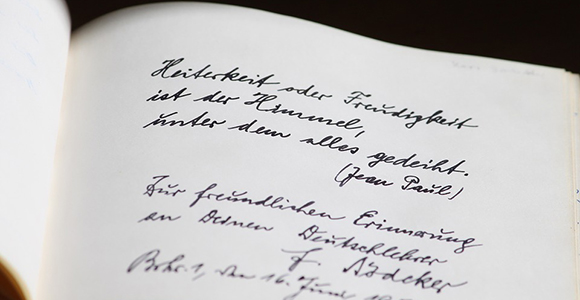 Heiterkeit oder Freudigkeit
ist der Himmel,
unter dem alles gedeiht.
(Jean Paul)
Zur freundlichen Erinnerung
an Deinen Deutschlehrer
F. Bödeker
den 16. Juni